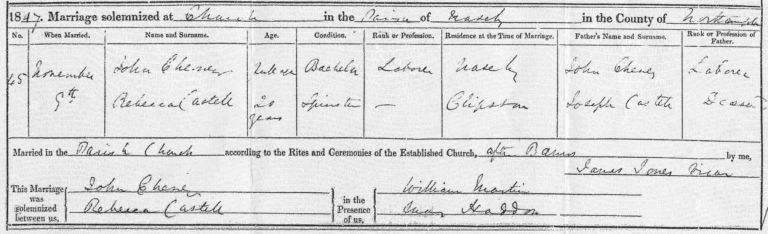 1847. Marriage solemnized at Church in the Parish of Naseby in the County of Northampton
No. When Married. Name and Surname. Age. Condition. Rank or Profession. Residence at the Time of Marriage. Father's Name and Surname. Rank or Profession of Father.
45 November John Cheney Full age Bachelor Laborer Naseby John Cheney Laborer
9th Rebecca Castell 20 years Spinster — Clipston Joseph Castell
Married in the Parish Church according to the Rites and Ceremonies of the Established Church, after Banns by me,
James Jones Vicar
This Marriage was solemnized between us, John Cheney Rebecca Castell in the Presence of us. William Martin Haddon